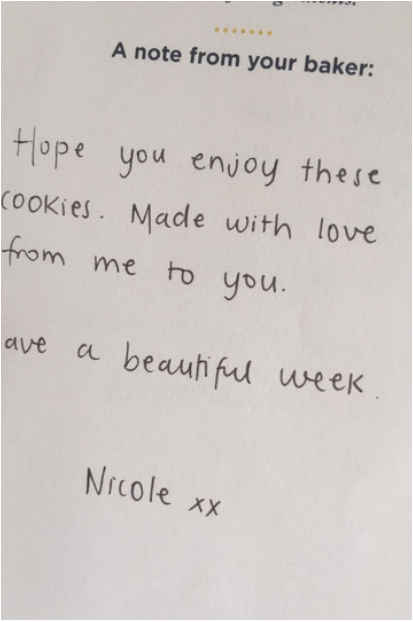 A note from your baker:
Hope you enjoy these
cookies. Made with love
from me to you.
ave a beautiful week.
Nicole xx